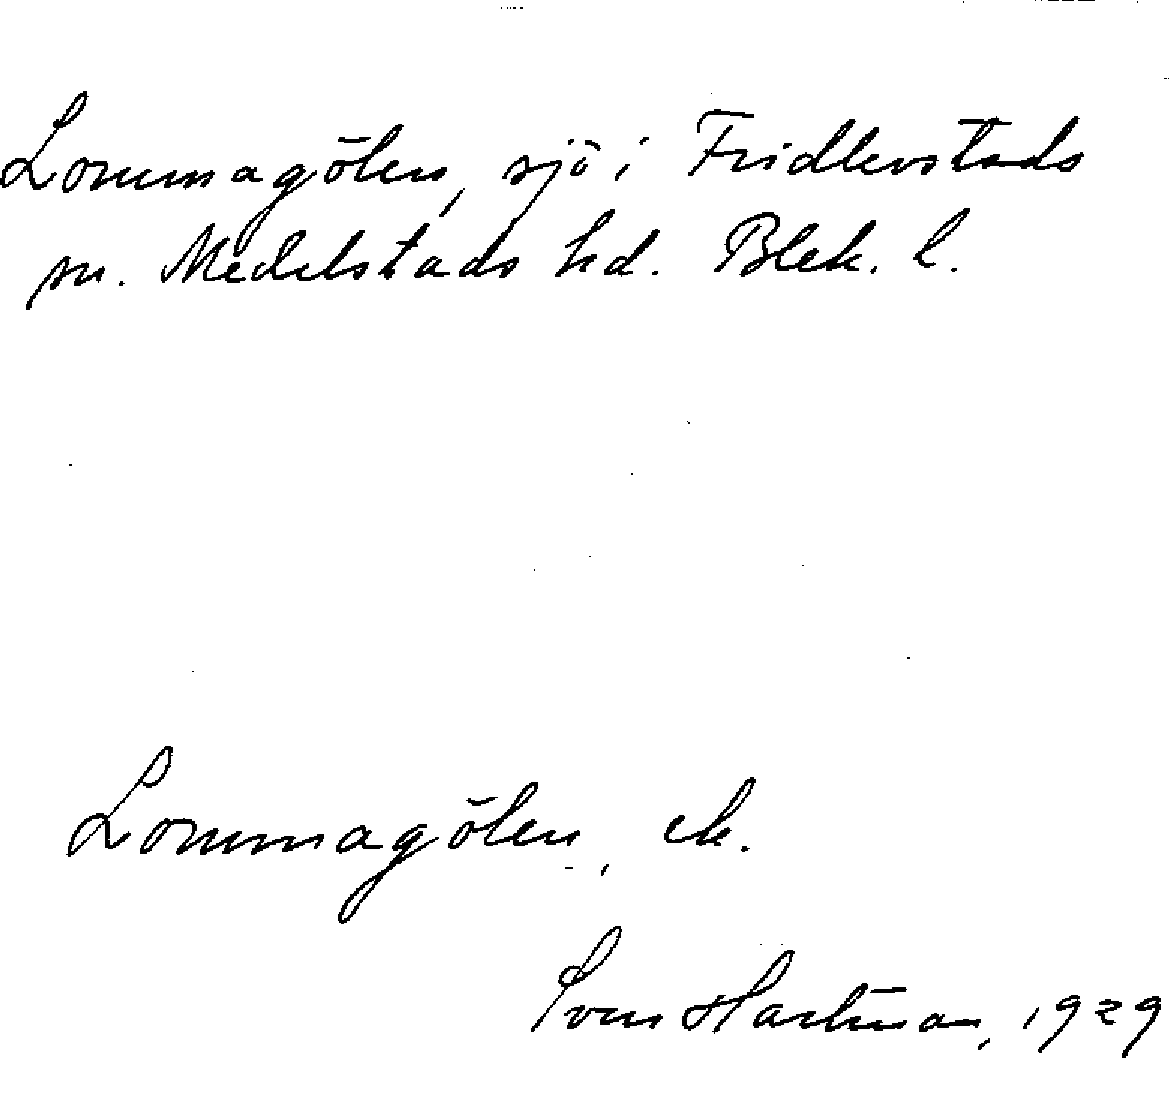 Lommagölen, sjö i Fridlevstads
sn. Medelstads hd. Blek. l.
Lommagölen, ek.
Sven Hartman, 1929